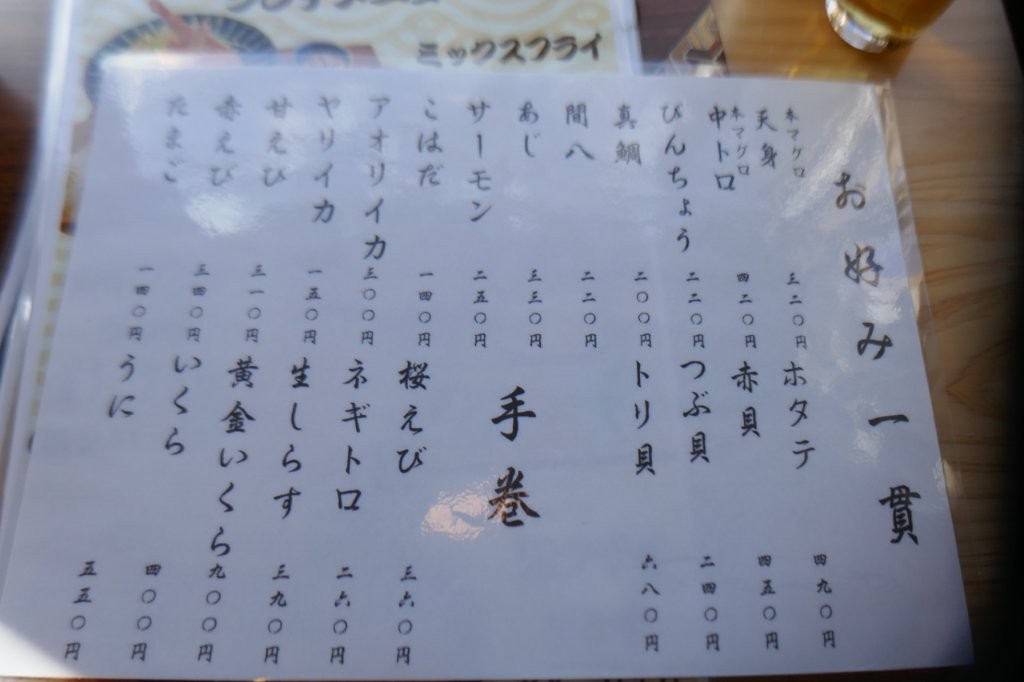 ミックスフライ
お好み一貫
本マグロ
天身 三二〇円
本マグロ
中トロ 四二〇円
びんちょう 二二〇円
真鯛 二〇〇円
間八 二二〇円
あじ 三三〇円
サーモン 二五〇円
こはだ 一四〇円
アオリイカ 三〇〇円
ヤリイカ 一五〇円
甘えび 三一〇円
赤えび 三四〇円
たまご 一四〇円
ホタテ 四九〇円
赤貝 四五〇円
つぶ貝 二四〇円
トリ貝 六八〇円
手巻
桜えび 三六〇円
ネギトロ 二六〇円
生しらす 三九〇円
黄金いくら 九〇〇円
いくら 四〇〇円
うに 五五〇円